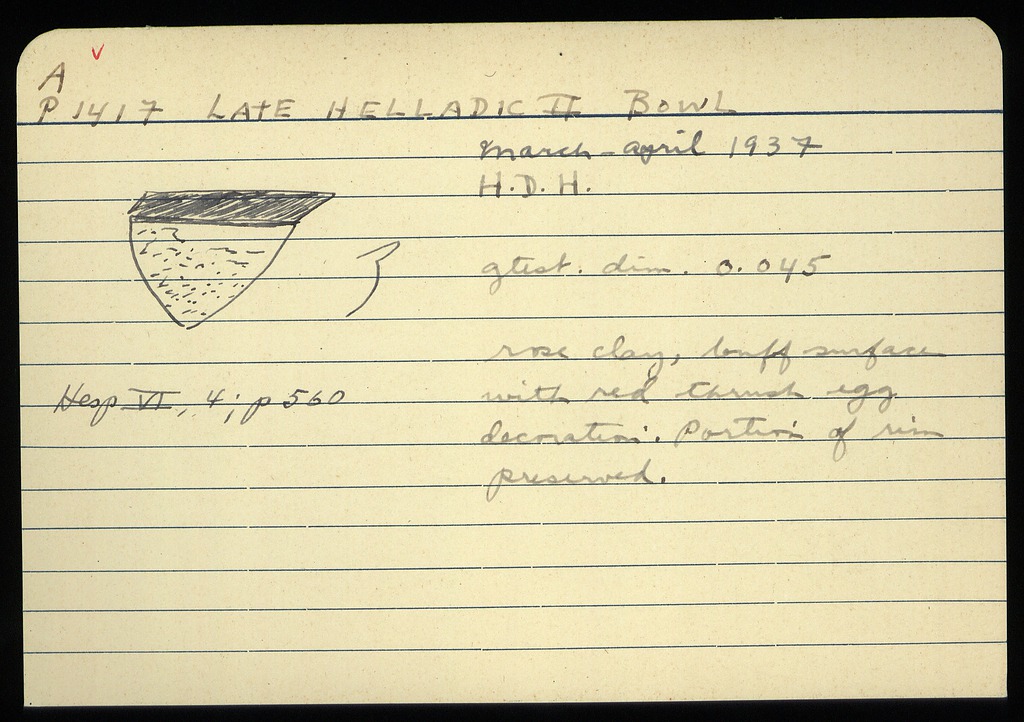 A
P 1417 LATE HELLADIC II BOWL
March-April 1937
H.D.H.
gtest. dim. 0.045
rose clay, buff surface
Hesp VI, 4; p 560
with red thrush egg
decoration. Portion of rim
preserved.